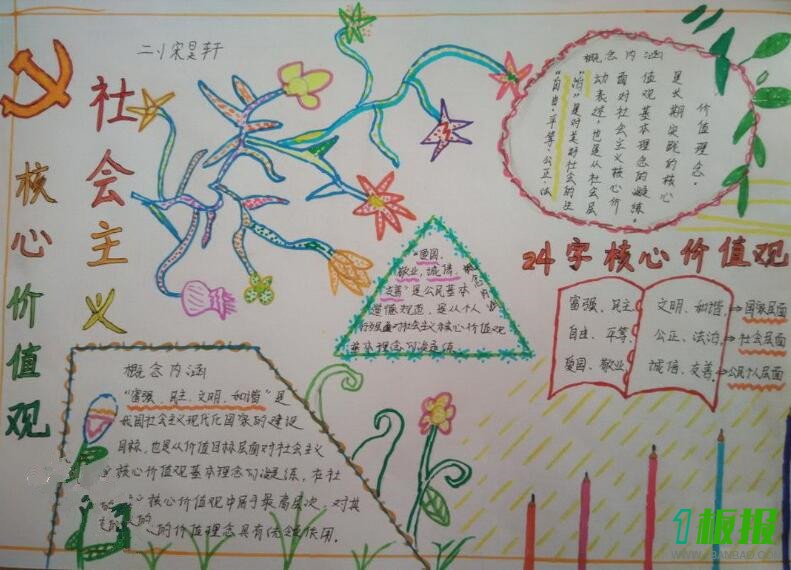 宋昊轩
社会主义
核心价值观
概念内涵
价值理念。
是长期实践的核心
值观基本理念的凝练。
面对社会主义核心价
动表述,也是从社会层
治”是对美好社会的生
“自由、平等、公正、法
24字核心价值观
富强、民主、 文明、和谐、→国家层面
自由、平等、 公正、法治、→社会层面
爱国、敬业、 诚信、友善、→公民个人层面
“爱国、
敬业、诚信、
友善”是公民基本
道德规范,是从个人
行为层面对社会主义核心价值观
基本理念的凝练。
概念内涵
概念内涵
“富强、民主、文明、和谐”是
我国社会主义现代化国家的建设
目标,也是从价值目标层面对社会主义
核心价值观基本理念的凝练,在社
核心价值观中居于最高层次,对其
的价值理念具有统领作用。
1板报
WWW.1BANBAO.COM